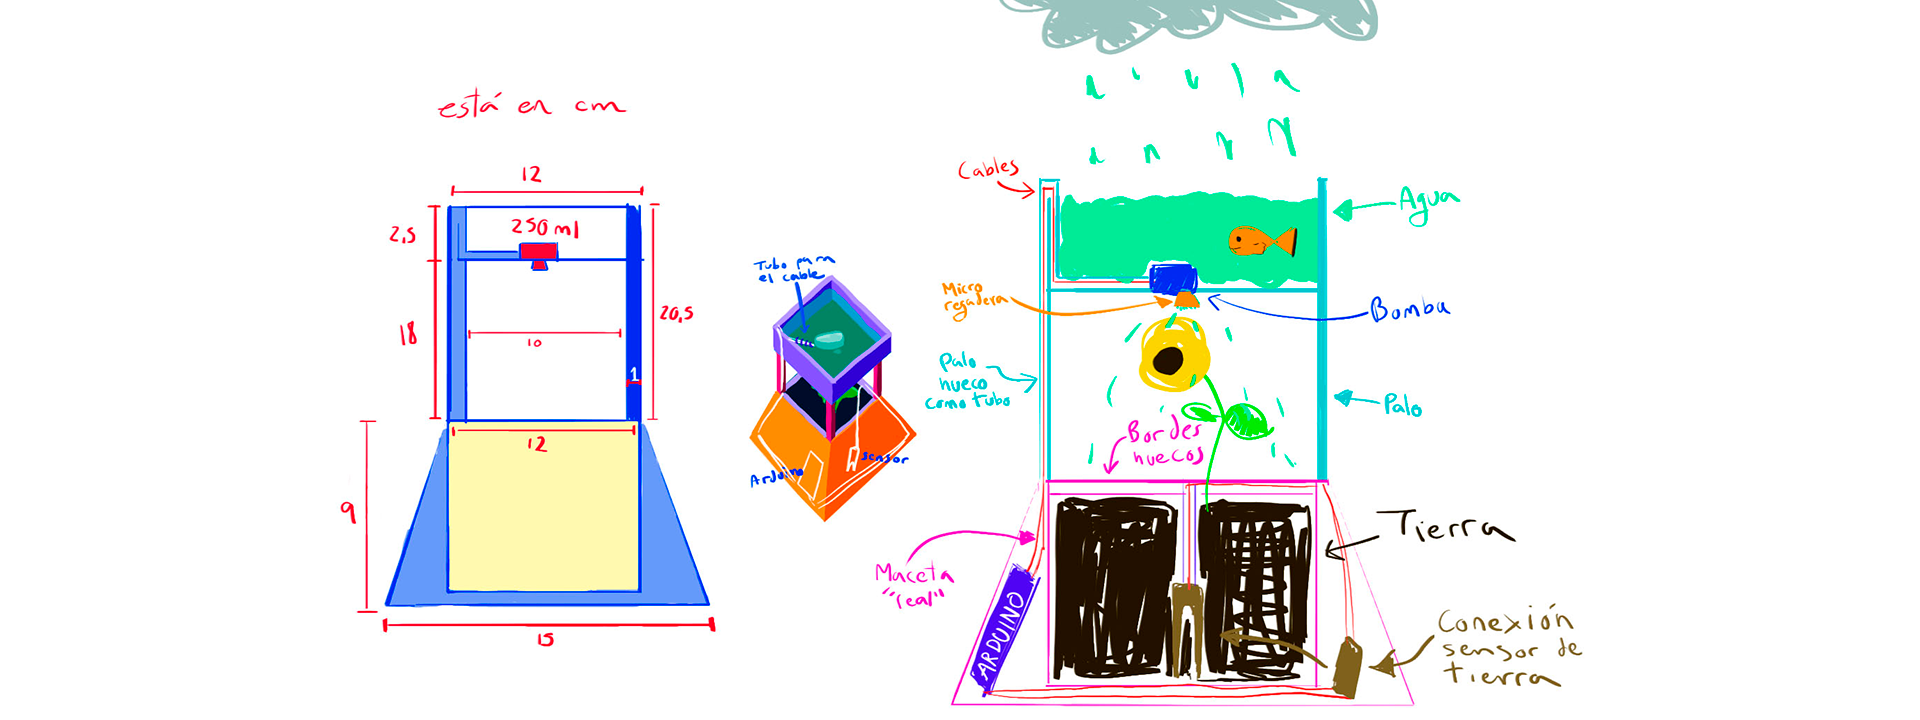 está en cm
12
2,5
250 ml
18
20,5
10
1
12
9
15
Tubo para
el cable
Arduino
sensor
Cables
Agua
Micro
regadera
Bomba
Palo
hueco
como tubo
Palo
Bordes
huecos
Tierra
Maceta
"real"
ARDUINO
Conexión
sensor de
tierra